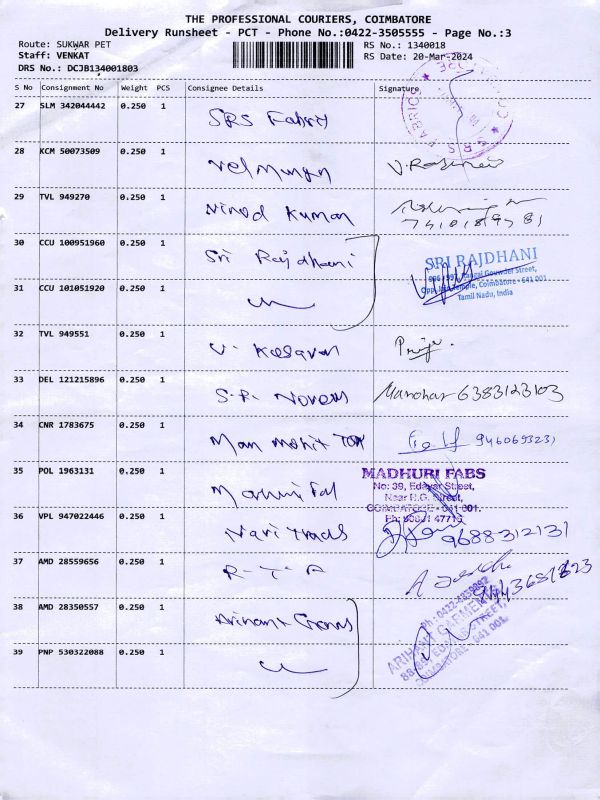 THE PROFESSIONAL COURIERS, COIMBATORE
Delivery Runsheet - PCT - Phone No.:0422-3505555 - Page No.:3
Route: SUKWAR PET RS No.: 1340018
Staff: VENKAT RS Date: 20-Mar-2024
DRS No.: DCJB134001803
S No Consignment No Weight PCS Consignee Details Signature
27 SLM 342044442 0.250 1 SRS Fabric
28 KCM 50073509 0.250 1 Velmurgn
29 TVL 949270 0.250 1 Vinod Kumar
30 CCU 100951960 0.250 1 Sri Rajdhani
SRI RAJDHANI
Tamil Nadu, India
31 CCU 101051920 0.250 1
32 TVL 949551 0.250 1 V. Kesavan
33 DEL 121215896 0.250 1 S.P. Manohar 6383123103
34 CNR 1783675 0.250 1 Man mohit
35 POL 1963131 0.250 1
MADHURI FABS
No: 39, Edayar Street,
Near R.G. Street,
COIMBATORE - 641 001.
36 VPL 947022446 0.250 1 9688312131
37 AMD 28559656 0.250 1 R-T-P
38 AMD 28350557 0.250 1 Arihant
ARIHANT GARMENTS
COIMBATORE - 641 001.
39 PNP 530322088 0.250 1